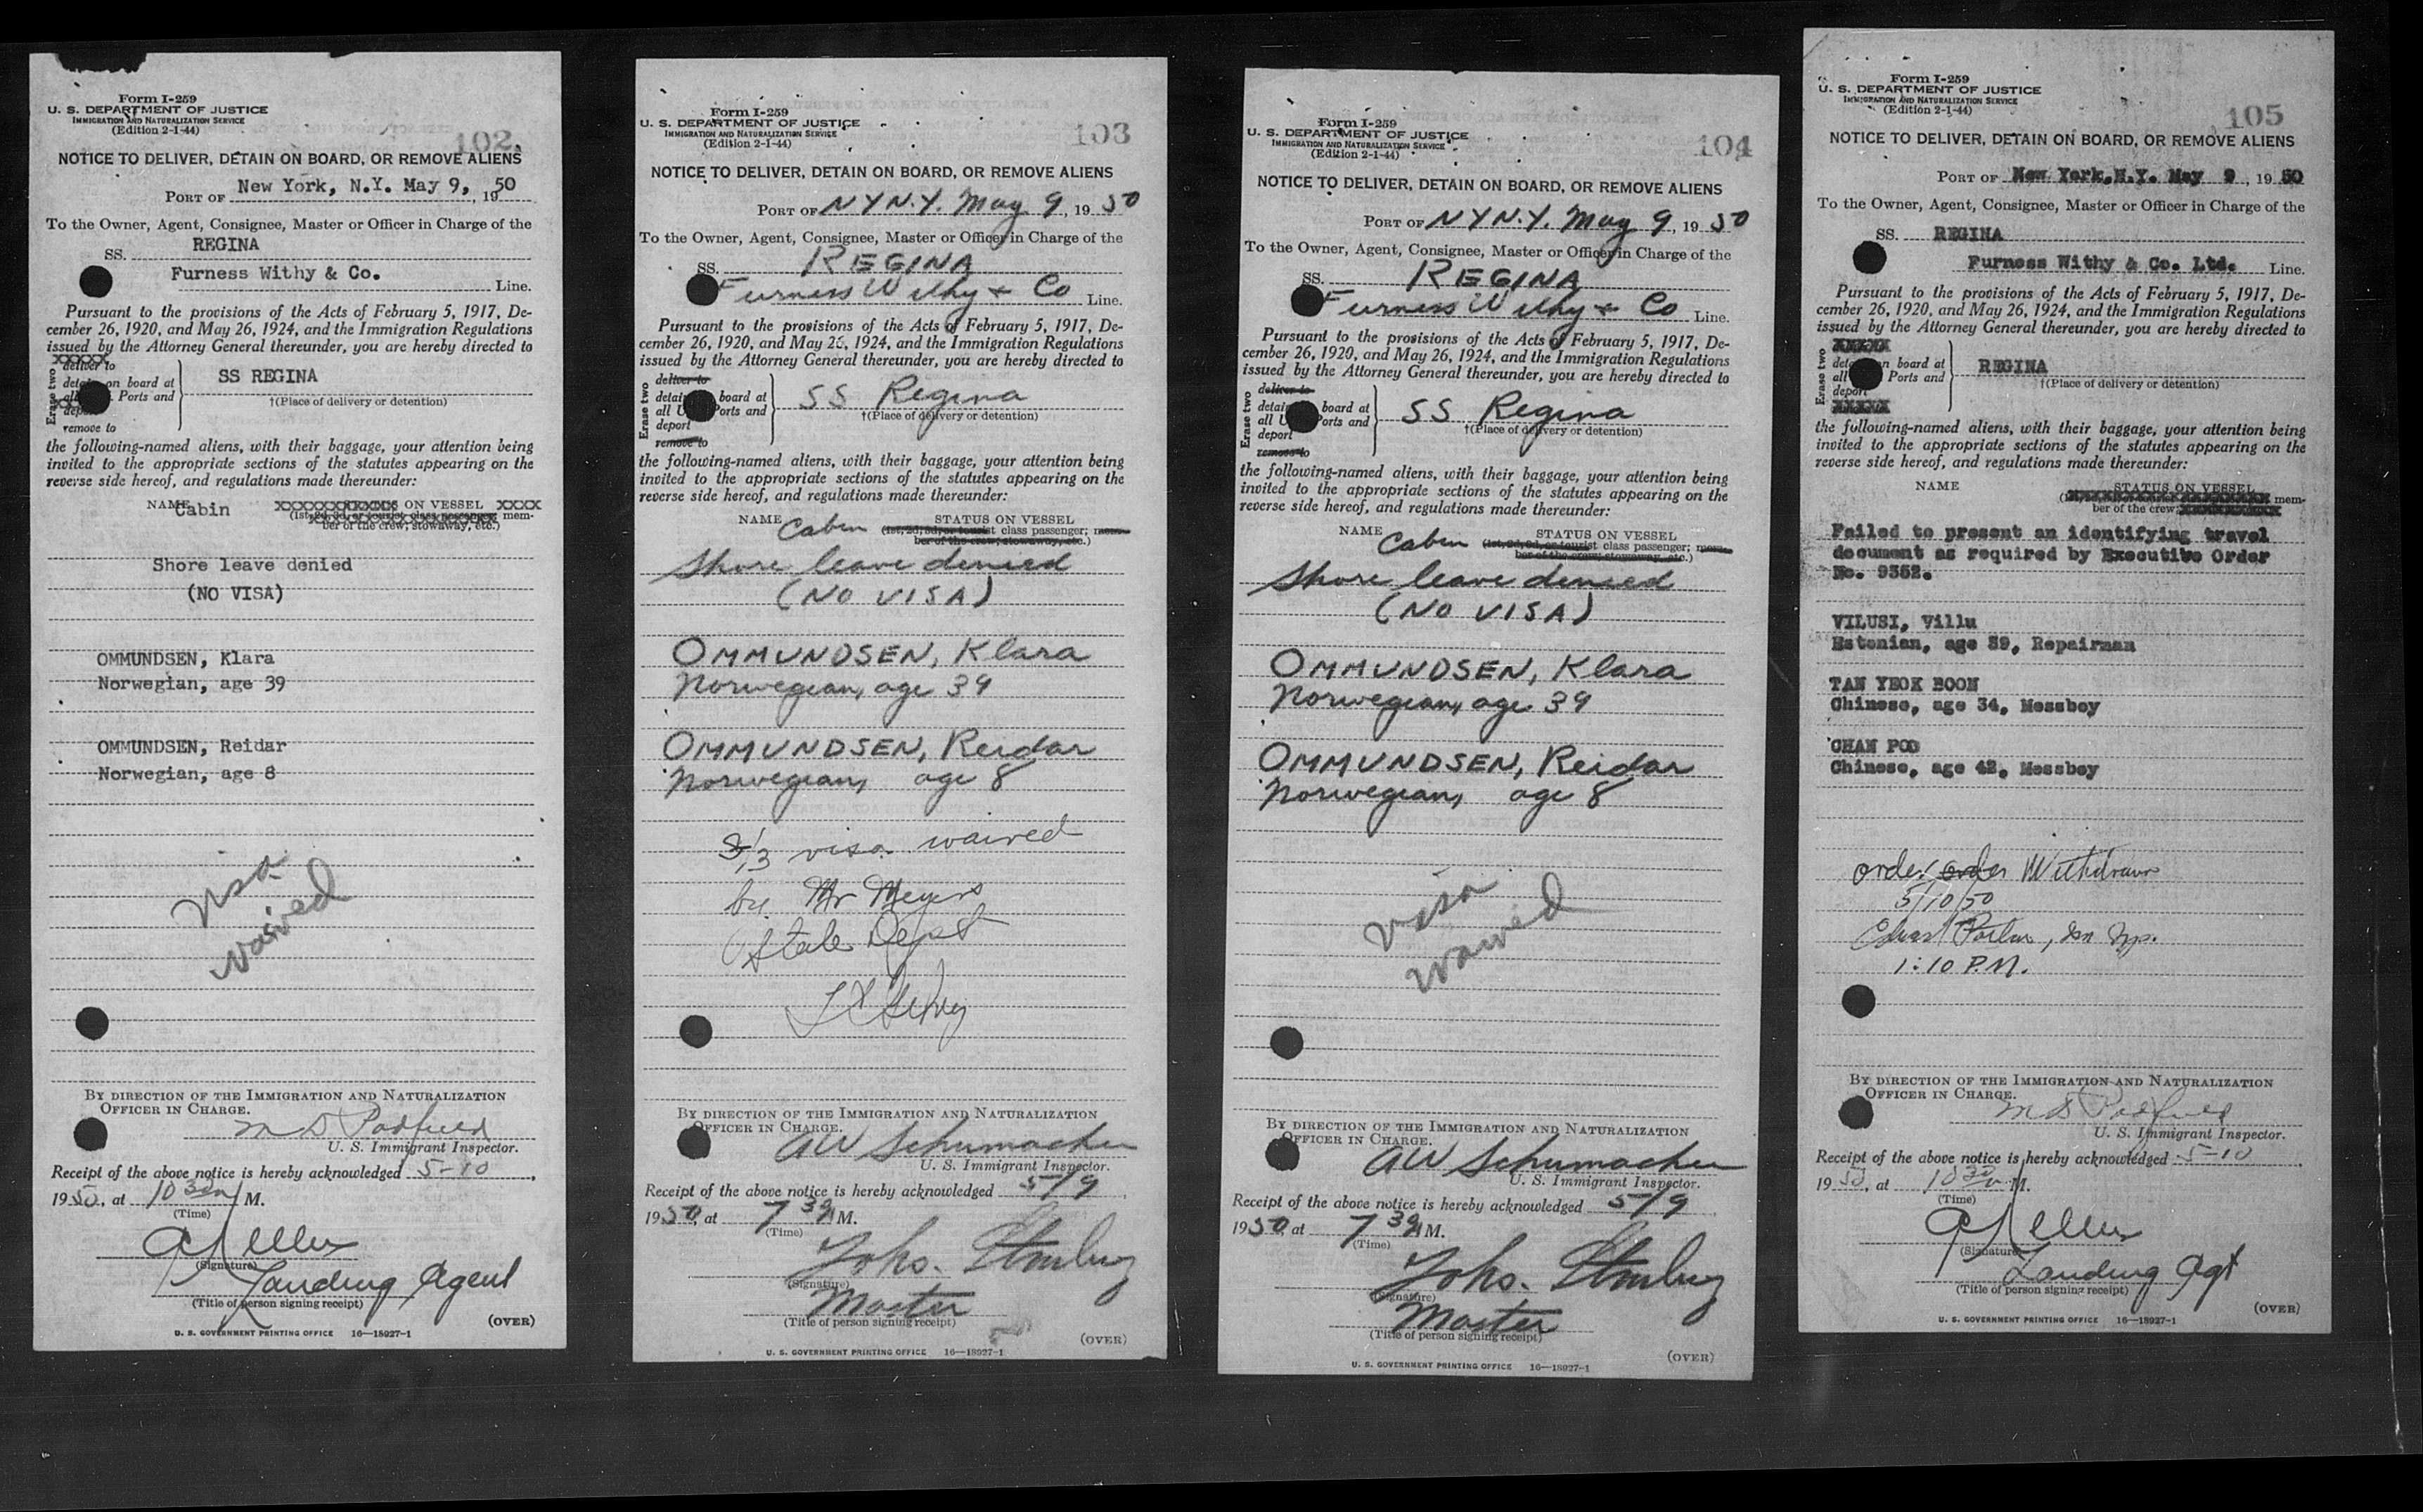 Form I-259
U. S. DEPARTMENT OF JUSTICE
IMMIGRATION AND NATURALIZATION SERVICE
(Edition 2-1-44)
102
NOTICE TO DELIVER, DETAIN ON BOARD, OR REMOVE ALIENS
PORT OF New York, N.Y. May 9, 1950
To the Owner, Agent, Consignee, Master or Officer in Charge of the
SS. REGINA
Furness Withy & Co. Line.
Pursuant to the provisions of the Acts of February 5, 1917, De-
cember 26, 1920, and May 26, 1924, and the Immigration Regulations
issued by the Attorney General thereunder, you are hereby directed to
Erase two
deliver to
on board at
Ports and
SS REGINA
†(Place of delivery or detention)
remove to
the following-named aliens, with their baggage, your attention being
invited to the appropriate sections of the statutes appearing on the
reverse side hereof, and regulations made thereunder:
NAME Cabin STATUS ON VESSEL
(1st, 2d, 3d, or tourist class passenger; mem-
ber of the crew; stowaway, etc.)
Shore leave denied
(NO VISA)
OMMUNDSEN, Klara
Norwegian, age 39
OMMUNDSEN, Reidar
Norwegian, age 8
visa
waived
BY DIRECTION OF THE IMMIGRATION AND NATURALIZATION
OFFICER IN CHARGE.
M D Padfield
U. S. Immigrant Inspector.
Receipt of the above notice is hereby acknowledged 5-10,
1950, at 10 30 M.
(Time)
(Signature)
Landing Agent
(Title of person signing receipt)
(OVER)
U. S. GOVERNMENT PRINTING OFFICE 16—18927-1
Form I-259
U. S. DEPARTMENT OF JUSTICE
IMMIGRATION AND NATURALIZATION SERVICE
(Edition 2-1-44)
103
NOTICE TO DELIVER, DETAIN ON BOARD, OR REMOVE ALIENS
PORT OF NY N.Y. May 9, 1950
To the Owner, Agent, Consignee, Master or Officer in Charge of the
SS. REGINA
Furness Withy & Co Line.
Pursuant to the provisions of the Acts of February 5, 1917, De-
cember 26, 1920, and May 26, 1924, and the Immigration Regulations
issued by the Attorney General thereunder, you are hereby directed to
Erase two
deliver to
detain board at
all U Ports and
deport
remove to
SS Regina
†(Place of delivery or detention)
the following-named aliens, with their baggage, your attention being
invited to the appropriate sections of the statutes appearing on the
reverse side hereof, and regulations made thereunder:
NAME Cabin STATUS ON VESSEL
(1st, 2d, 3d, or tourist class passenger; mem-
ber of the crew; stowaway, etc.)
Shore leave denied
(NO VISA)
OMMUNDSEN, Klara
Norwegian, age 39
OMMUNDSEN, Reidar
Norwegian, age 8
visa waived
by Mr Meyers
State Dept
BY DIRECTION OF THE IMMIGRATION AND NATURALIZATION
OFFICER IN CHARGE.
AW Schumacher
U. S. Immigrant Inspector.
Receipt of the above notice is hereby acknowledged 5/9,
1950, at 7 30 AM.
(Time)
(Signature)
Master
(Title of person signing receipt)
(OVER)
U. S. GOVERNMENT PRINTING OFFICE 16—18927-1
Form I-259
U. S. DEPARTMENT OF JUSTICE
IMMIGRATION AND NATURALIZATION SERVICE
(Edition 2-1-44)
104
NOTICE TO DELIVER, DETAIN ON BOARD, OR REMOVE ALIENS
PORT OF NY N.Y. May 9, 1950
To the Owner, Agent, Consignee, Master or Officer in Charge of the
SS. REGINA
Furness Withy & Co Line.
Pursuant to the provisions of the Acts of February 5, 1917, De-
cember 26, 1920, and May 26, 1924, and the Immigration Regulations
issued by the Attorney General thereunder, you are hereby directed to
Erase two
deliver to
detain board at
all U Ports and
deport
remove to
SS Regina
†(Place of delivery or detention)
the following-named aliens, with their baggage, your attention being
invited to the appropriate sections of the statutes appearing on the
reverse side hereof, and regulations made thereunder:
NAME Cabin STATUS ON VESSEL
(1st, 2d, 3d, or tourist class passenger; mem-
ber of the crew; stowaway, etc.)
Shore leave denied
(NO VISA)
OMMUNDSEN, Klara
Norwegian, age 39
OMMUNDSEN, Reidar
Norwegian, age 8
visa
waived
BY DIRECTION OF THE IMMIGRATION AND NATURALIZATION
OFFICER IN CHARGE.
AW Schumacher
U. S. Immigrant Inspector.
Receipt of the above notice is hereby acknowledged 5/9
1950 at 7 30 AM.
(Time)
(Signature)
Master
(Title of person signing receipt)
(OVER)
U. S. GOVERNMENT PRINTING OFFICE 16—18927-1
Form I-259
U. S. DEPARTMENT OF JUSTICE
IMMIGRATION AND NATURALIZATION SERVICE
(Edition 2-1-44)
105
NOTICE TO DELIVER, DETAIN ON BOARD, OR REMOVE ALIENS
PORT OF New York, N.Y. May 9, 1950
To the Owner, Agent, Consignee, Master or Officer in Charge of the
SS. REGINA
Furness Withy & Co. Ltd. Line.
Pursuant to the provisions of the Acts of February 5, 1917, De-
cember 26, 1920, and May 26, 1924, and the Immigration Regulations
issued by the Attorney General thereunder, you are hereby directed to
Erase two
XXXXX
on board at
all Ports and
deport
XXXXX
REGINA
†(Place of delivery or detention)
the following-named aliens, with their baggage, your attention being
invited to the appropriate sections of the statutes appearing on the
reverse side hereof, and regulations made thereunder:
NAME STATUS ON VESSEL
mem-
ber of the crew;
Failed to present an identifying travel
document as required by Executive Order
No. 9352.
VILUSI, Villu
Estonian, age 39, Repairman
TAN YEOK BOON
Chinese, age 34, Messboy
CHAN POO
Chinese, age 42, Messboy
order order Withdrawn
5/10/50
1:10 P.M.
BY DIRECTION OF THE IMMIGRATION AND NATURALIZATION
OFFICER IN CHARGE.
M D Padfield
U. S. Immigrant Inspector.
Receipt of the above notice is hereby acknowledged 5-10,
1950, at 10 30 M.
(Time)
(Signature)
Landing Agt
(Title of person signing receipt)
(OVER)
U. S. GOVERNMENT PRINTING OFFICE 16—18927-1